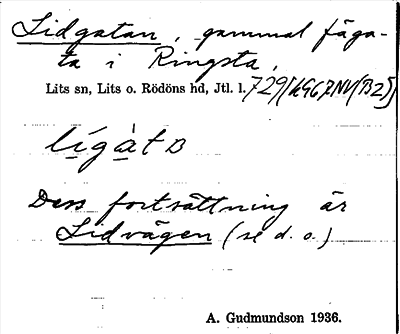 Lidgatan, gammal fäga-
ta i Ringsta.
Lits sn, Lits o. Rödöns hd, Jtl. l. 729
lígàt B
Dess fortsättning är
Lidvägen (se d. o.)
A. Gudmundson 1936.